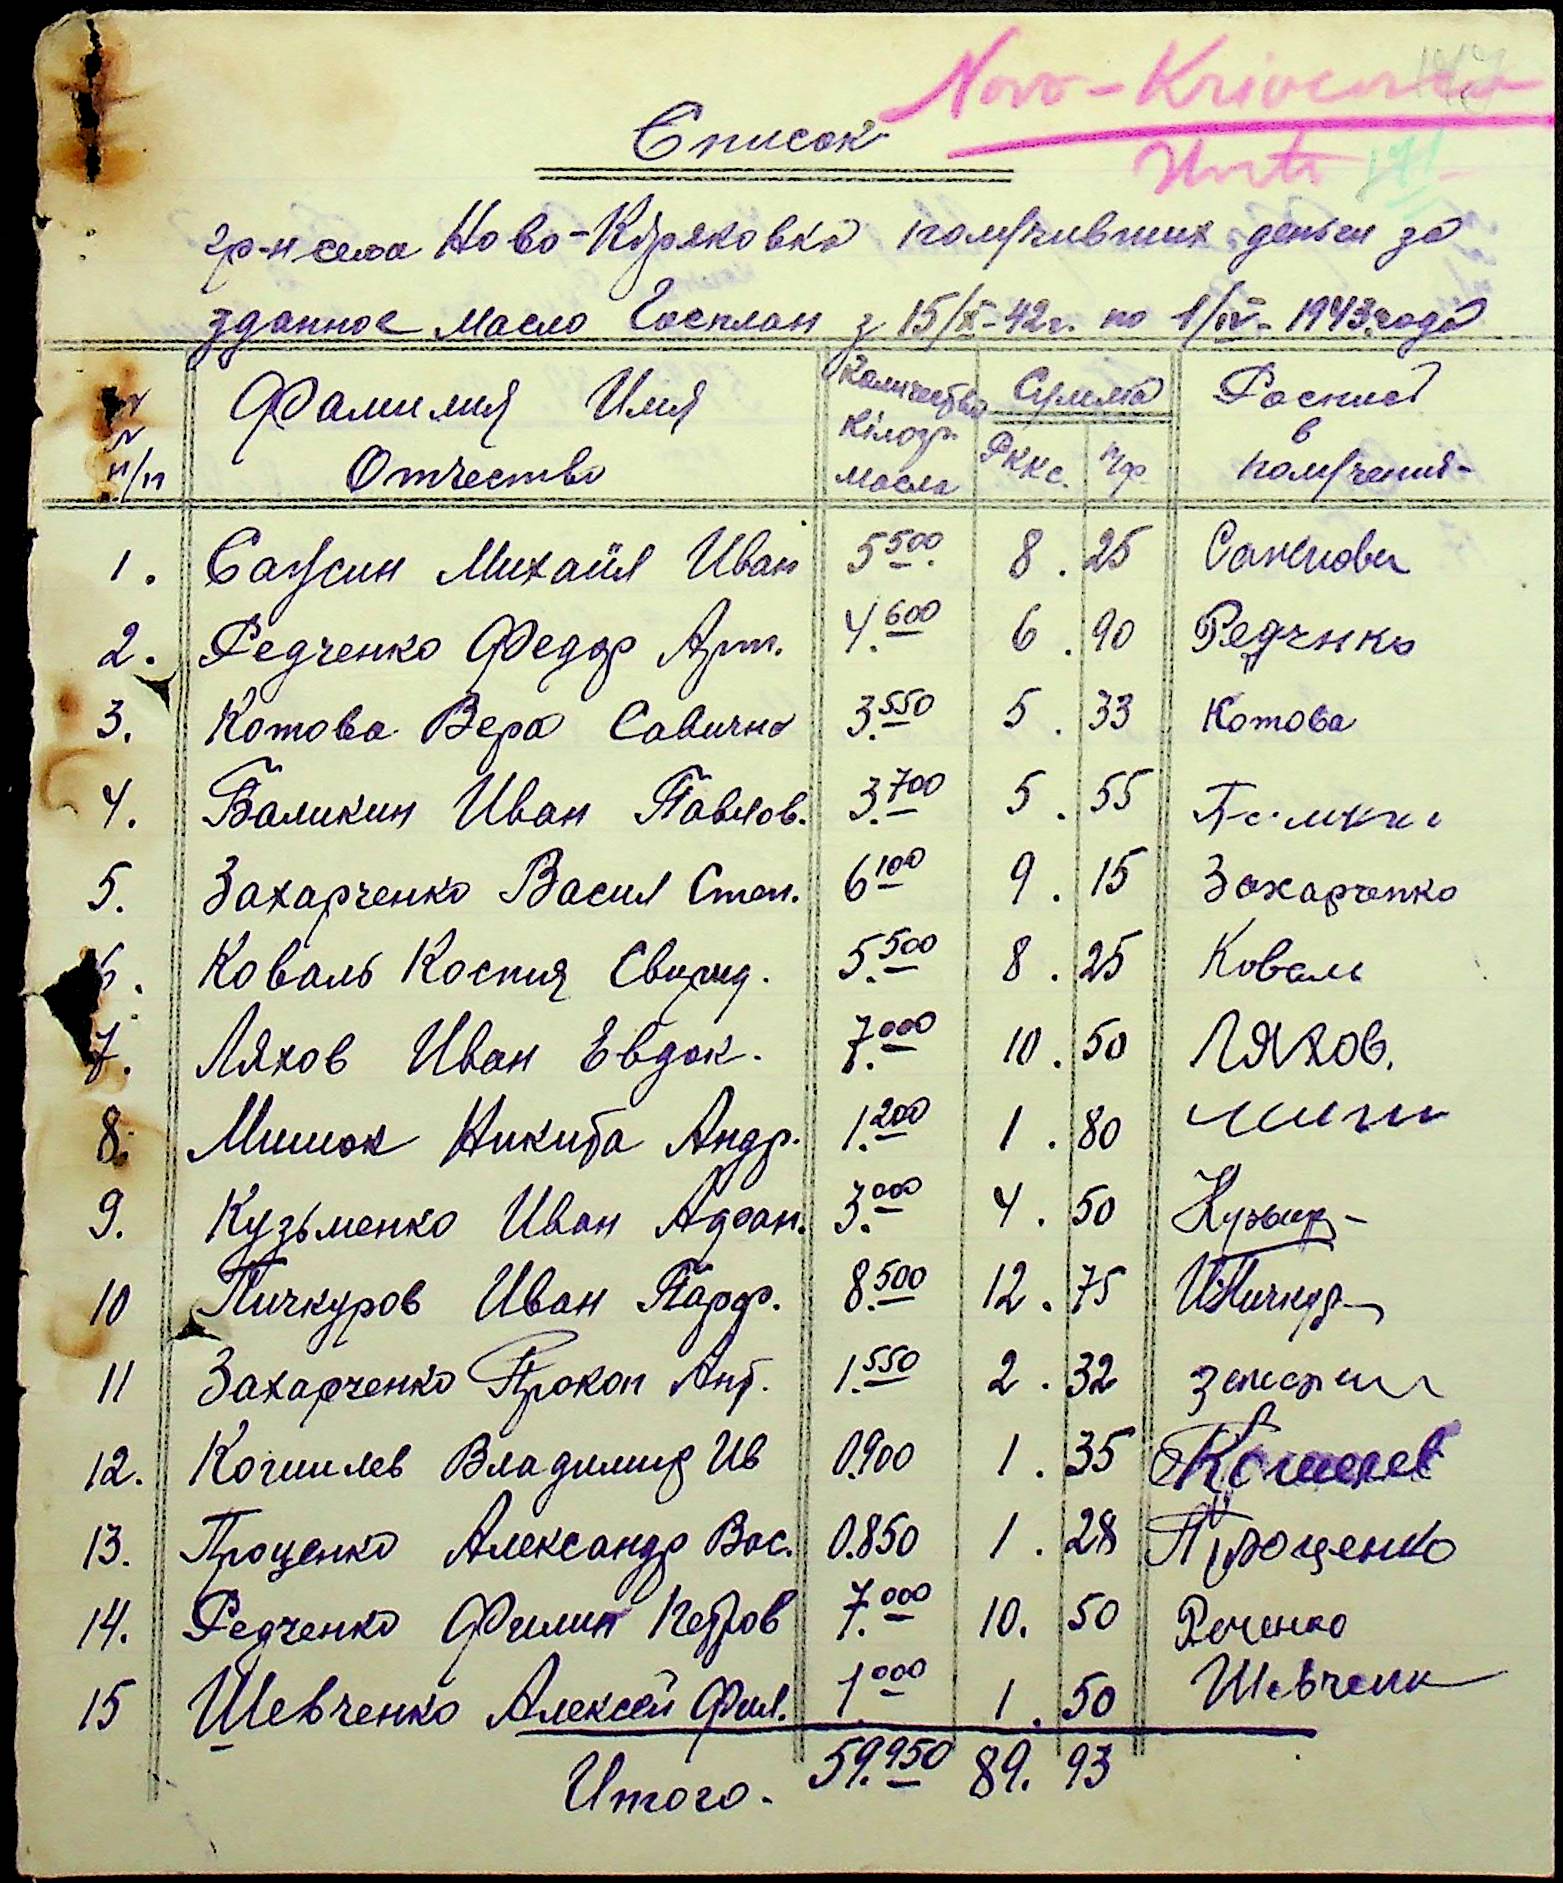 Novo-
Список
гр-н села Ново-Кряковка получивших деньги за
зданное масло Госплан з 15/X-42г. по 1/IV-1943 года
№ № п/п Фамилия Имя Отчество Количество Кілогр. масла Сумма Рккс. Пф Роспис в получения-
1. Михайл Иван 5500 8.25
2. Редченко Федор Арт. 4.600 6.90 Редчнко
3. Котова Вера Савична 3.550 5.33 Котова
4. Баликин Иван Павлов. 3.700 5.55
5. Захарченко Васил Степ. 6100 9.15 Захарченко
6. Коваль Костя Свирид. 5.500 8.25 Коваль
7. Ляхов Иван Евдок. 7.000 10.50 Ляхов.
8. Мишок Никита Андр. 1.200 1.80
9. Кузьменко Иван Афан. 3.000 4.50
10 Пичкуров Иван Парф. 8.500 12.75
11 Захарченко Прокоп Ант. 1.550 2.32
12. Кошилев Владимир Ив 0.900 1.35 Кошелев
13. Проценко Александр Вас. 0.850 1.28 Проценко
14. Редченко Филип Петров 7.000 10.50
15 Шевченко Алексей Фил. 1.000 1.50 Шевченк
Итого. 59.950 89.93